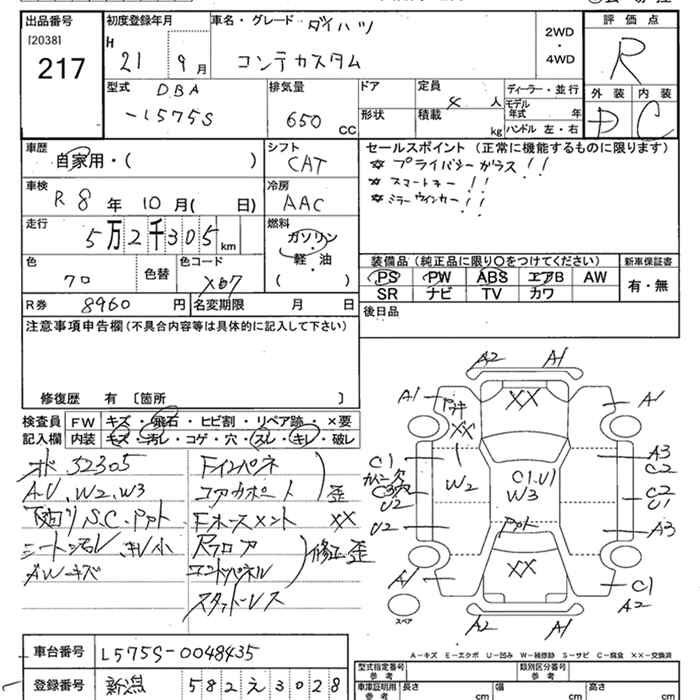 出品番号
[20381
217
初度登録年月
H 21 9 月
車名・グレード ダイハツ
コンテカスタム
2WD
・
4WD
評価点
R
外装 内装
D C
型式 DBA
-L575S
排気量
650 CC
ドア
形状
定員 4 人
積載 kg
ディーラー・並行
モデル年式 年
ハンドル 左・右
車歴
自家用・( )
シフト
CAT
車検
R 8 年 10 月( 日)
冷房
AAC
走行
5万2千305 km
燃料
ガソリン
軽・油
( )
色
クロ
色替
色コード
X07
R券 8960 円
名変期限 月 日
セールスポイント (正常に機能するものに限ります)
☆ プライバシーガラス!!
☆ スマートキー!!
☆ ミラーウインカー!!
装備品(純正品に限り○をつけてください)
新車保証書
PS PW ABS エアB AW
SR ナビ TV カワ
有・無
後日品
注意事項申告欄(不具合内容等は具体的に記入して下さい)
修復歴 有 〔箇所 〕
検査員
記入欄
FW キズ・飛石・ヒビ割・リペア跡・×要
内装 キズ・汚レ・コゲ・穴・スレ・キレ・破レ
52305
A.U、W2、W3
下回り S.C.
AWキズ
Fインパネ
コアサポート
歪
XX
Rフロア
エンドパネル
修正歪
スタッドレス
A2 A1
A1 XX A1
XX
C1
W2
C2
U2
C1.U1
W3
A3
C2
C2
U1
A3
XX
A1
C1
A2
A2 A1
スペア
A-キズ E-エクボ U-凹み W-補修跡 S-サビ C-腐食 XX-交換済
車台番号 L575S-0048435
登録番号 新潟 582え3028
型式指定番号
参考
類別区分番号
参考
車庫証明用
参考
長さ cm
幅 cm
高さ cm